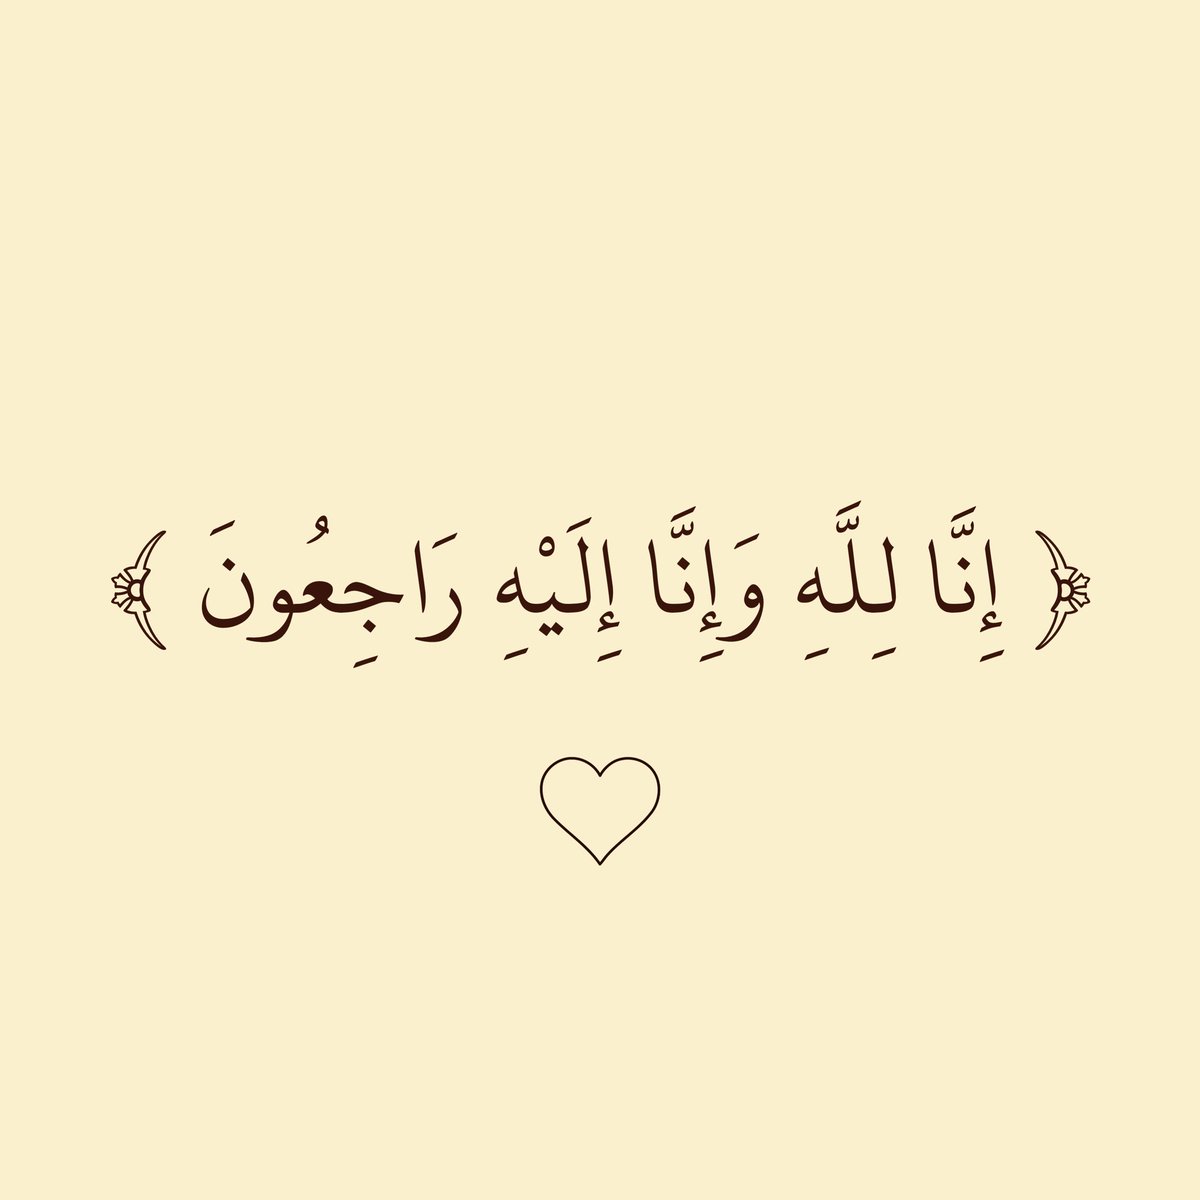 ﴿ إِنَّا لِلَّهِ وَإِنَّا إِلَيْهِ رَاجِعُونَ ﴾